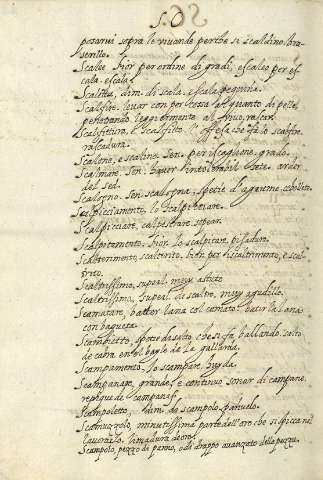 S. C
posarui sopra le viuande perche si scaldino. bra-
serillo.
Scalee. hior. per ordine di gradi, escaleo per es-
cala. escala.
Scaletta, dim. di scala. escala pequeña.
Scalfire. leuar con poco alquanto di pelle
penetrando leggiermente al viuo.
Scalfittura, e Scalfitto. l'offesa che fa lo scalfire.
rascadura.
Scalone, e scalino. Sen. per iscaglione. grado.
Scalmare. Sen. hauer intolerabil sete. arder
del sed.
Scalogno. Sen. scalogna. spetie d'agrume. cebolleta.
Scalpicciamento, lo scalpicciare.
Scalpicciare, calpestrare. sopear.
Scalpitamento. hior. lo scalpitare. pisadura.
Scalterimento, scalterito. hior. per iscaltrimento, e scal-
trito.
Scaltrissimo, superl. muy astuto
Scaltrissimo, superl. de scaltro, muy agudillo.
Scamatare, batter lana col camato. batir la lana
con baqueta.
Scambietto, spetie de salto, che si fa, ballando. salto
de cabra en el bayle de la gallarda.
Scampamento. lo scampare. huyda.
Scampanare, grande, e continuo sonar di campane.
repique de campanas.
Scampoletto, dim. da scampolo. pañuelo.
Scamuzzolo, minutissima parte dell'oro che si spicca nel
lauorarlo. limadura de oro.
Scampolo, pezzo di panno, o di drappo auanzato della pezza.